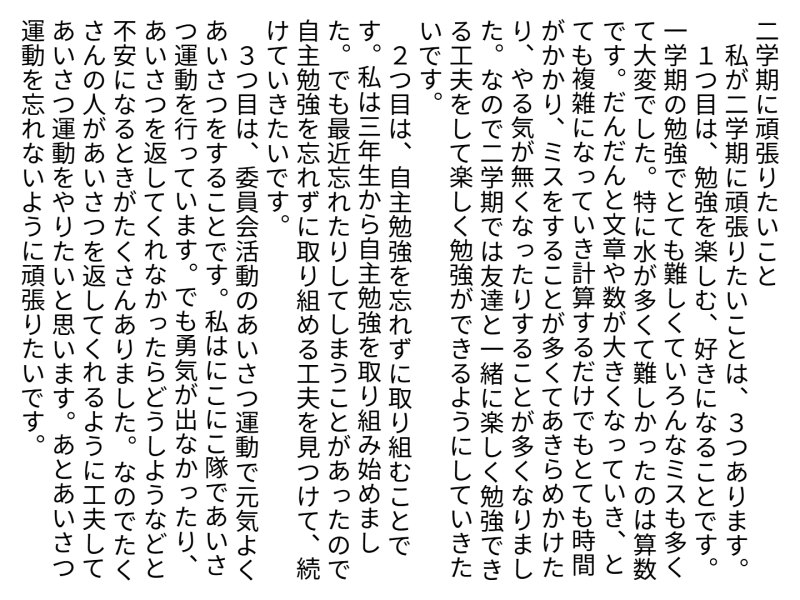 二学期に頑張りたいこと
　私が二学期に頑張りたいことは、３つあります。
　１つ目は、勉強を楽しむ、好きになることです。
一学期の勉強でとても難しくていろんなミスも多く
て大変でした。特に水が多くて難しかったのは算数
です。だんだんと文章や数が大きくなっていき、と
ても複雑になっていき計算するだけでもとても時間
がかかり、ミスをすることが多くてあきらめかけた
り、やる気が無くなったりすることが多くなりまし
た。なので二学期では友達と一緒に楽しく勉強でき
る工夫をして楽しく勉強ができるようにしていきた
いです。
　２つ目は、自主勉強を忘れずに取り組むことで
す。私は三年生から自主勉強を取り組み始めまし
た。でも最近忘れたりしてしまうことがあったので
自主勉強を忘れずに取り組める工夫を見つけて、続
けていきたいです。
　３つ目は、委員会活動のあいさつ運動で元気よく
あいさつをすることです。私はにこにこ隊であいさ
つ運動を行っています。でも勇気が出なかったり、
あいさつを返してくれなかったらどうしようなどと
不安になるときがたくさんありました。なのでたく
さんの人があいさつを返してくれるように工夫して
あいさつ運動をやりたいと思います。あとあいさつ
運動を忘れないように頑張りたいです。